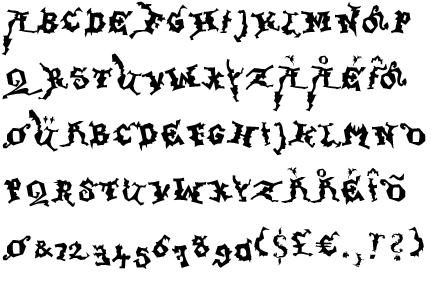 ABCDEFGHIJKLMNÕØP
QRSTUVWXYZÀÅÉÎÕ
ØÜABCDEFGHIJKLMNO
PQRSTUVWXYZÀÅÉÎÕ
Ø&1234567890($£€.,!?)